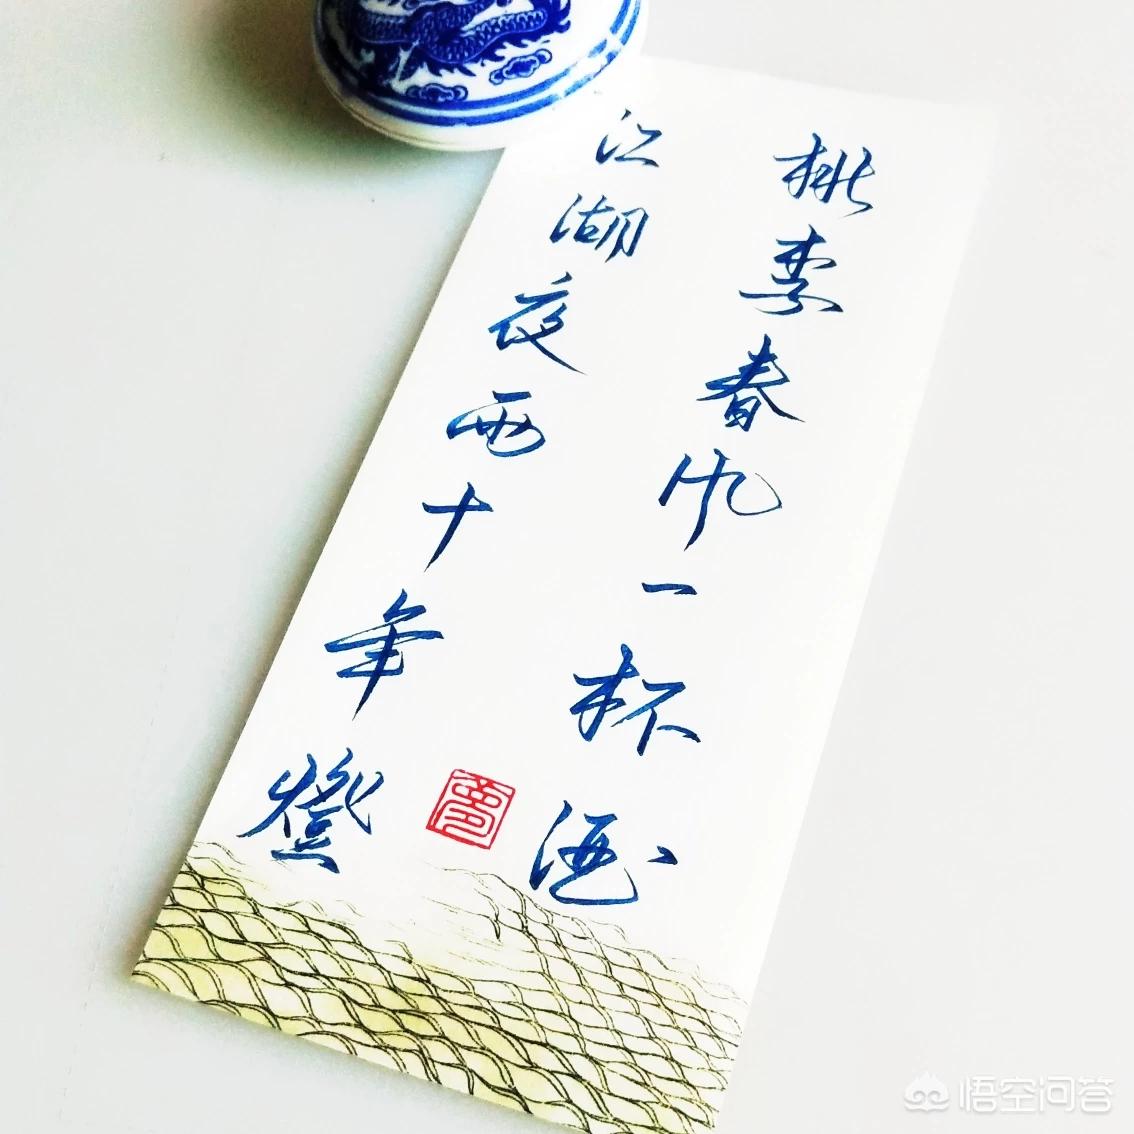 桃李春风一杯酒
江湖夜雨十年燈
悟空问答